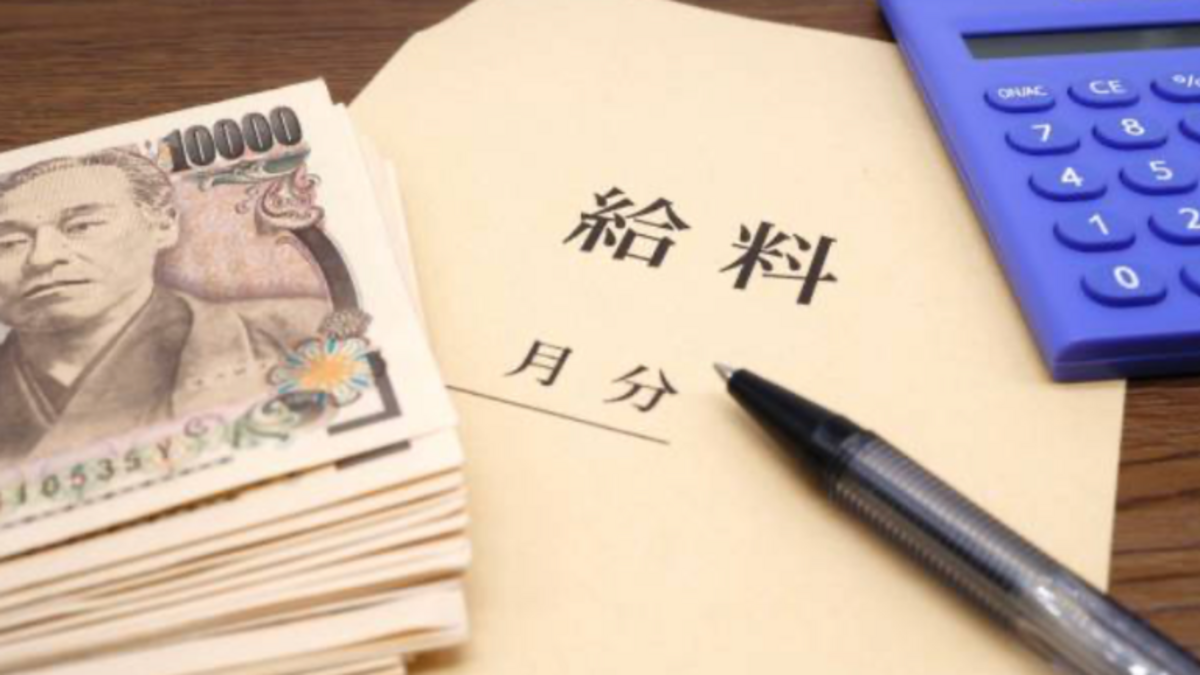 10000
給料
月分
ON/AC CE %
7 8
4 5
1 2
0
10535Y